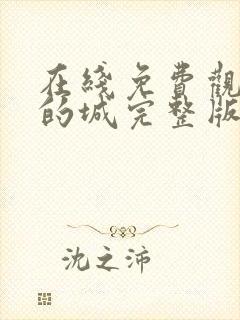 在綫免費觀
的城完整版
沈之沛